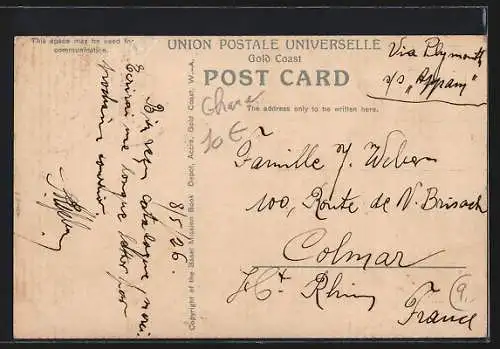 This space may be used for
communication.
UNION POSTALE UNIVERSELLE
Gold Coast
POST CARD
The address only to be written here.
Via Plymouth
s/s "Appam"
Ghana
10 €
8/5/26.
Bien reçu catalogue, merci.
Ecrirai une longue lettre par
prochain courrier
Copyright of the Basel Mission Book Depot, Accra, Gold Coast, W.-A.
Famille J. Weber
100, Route de N. Brisach
Colmar
Ht. Rhin
France
9.